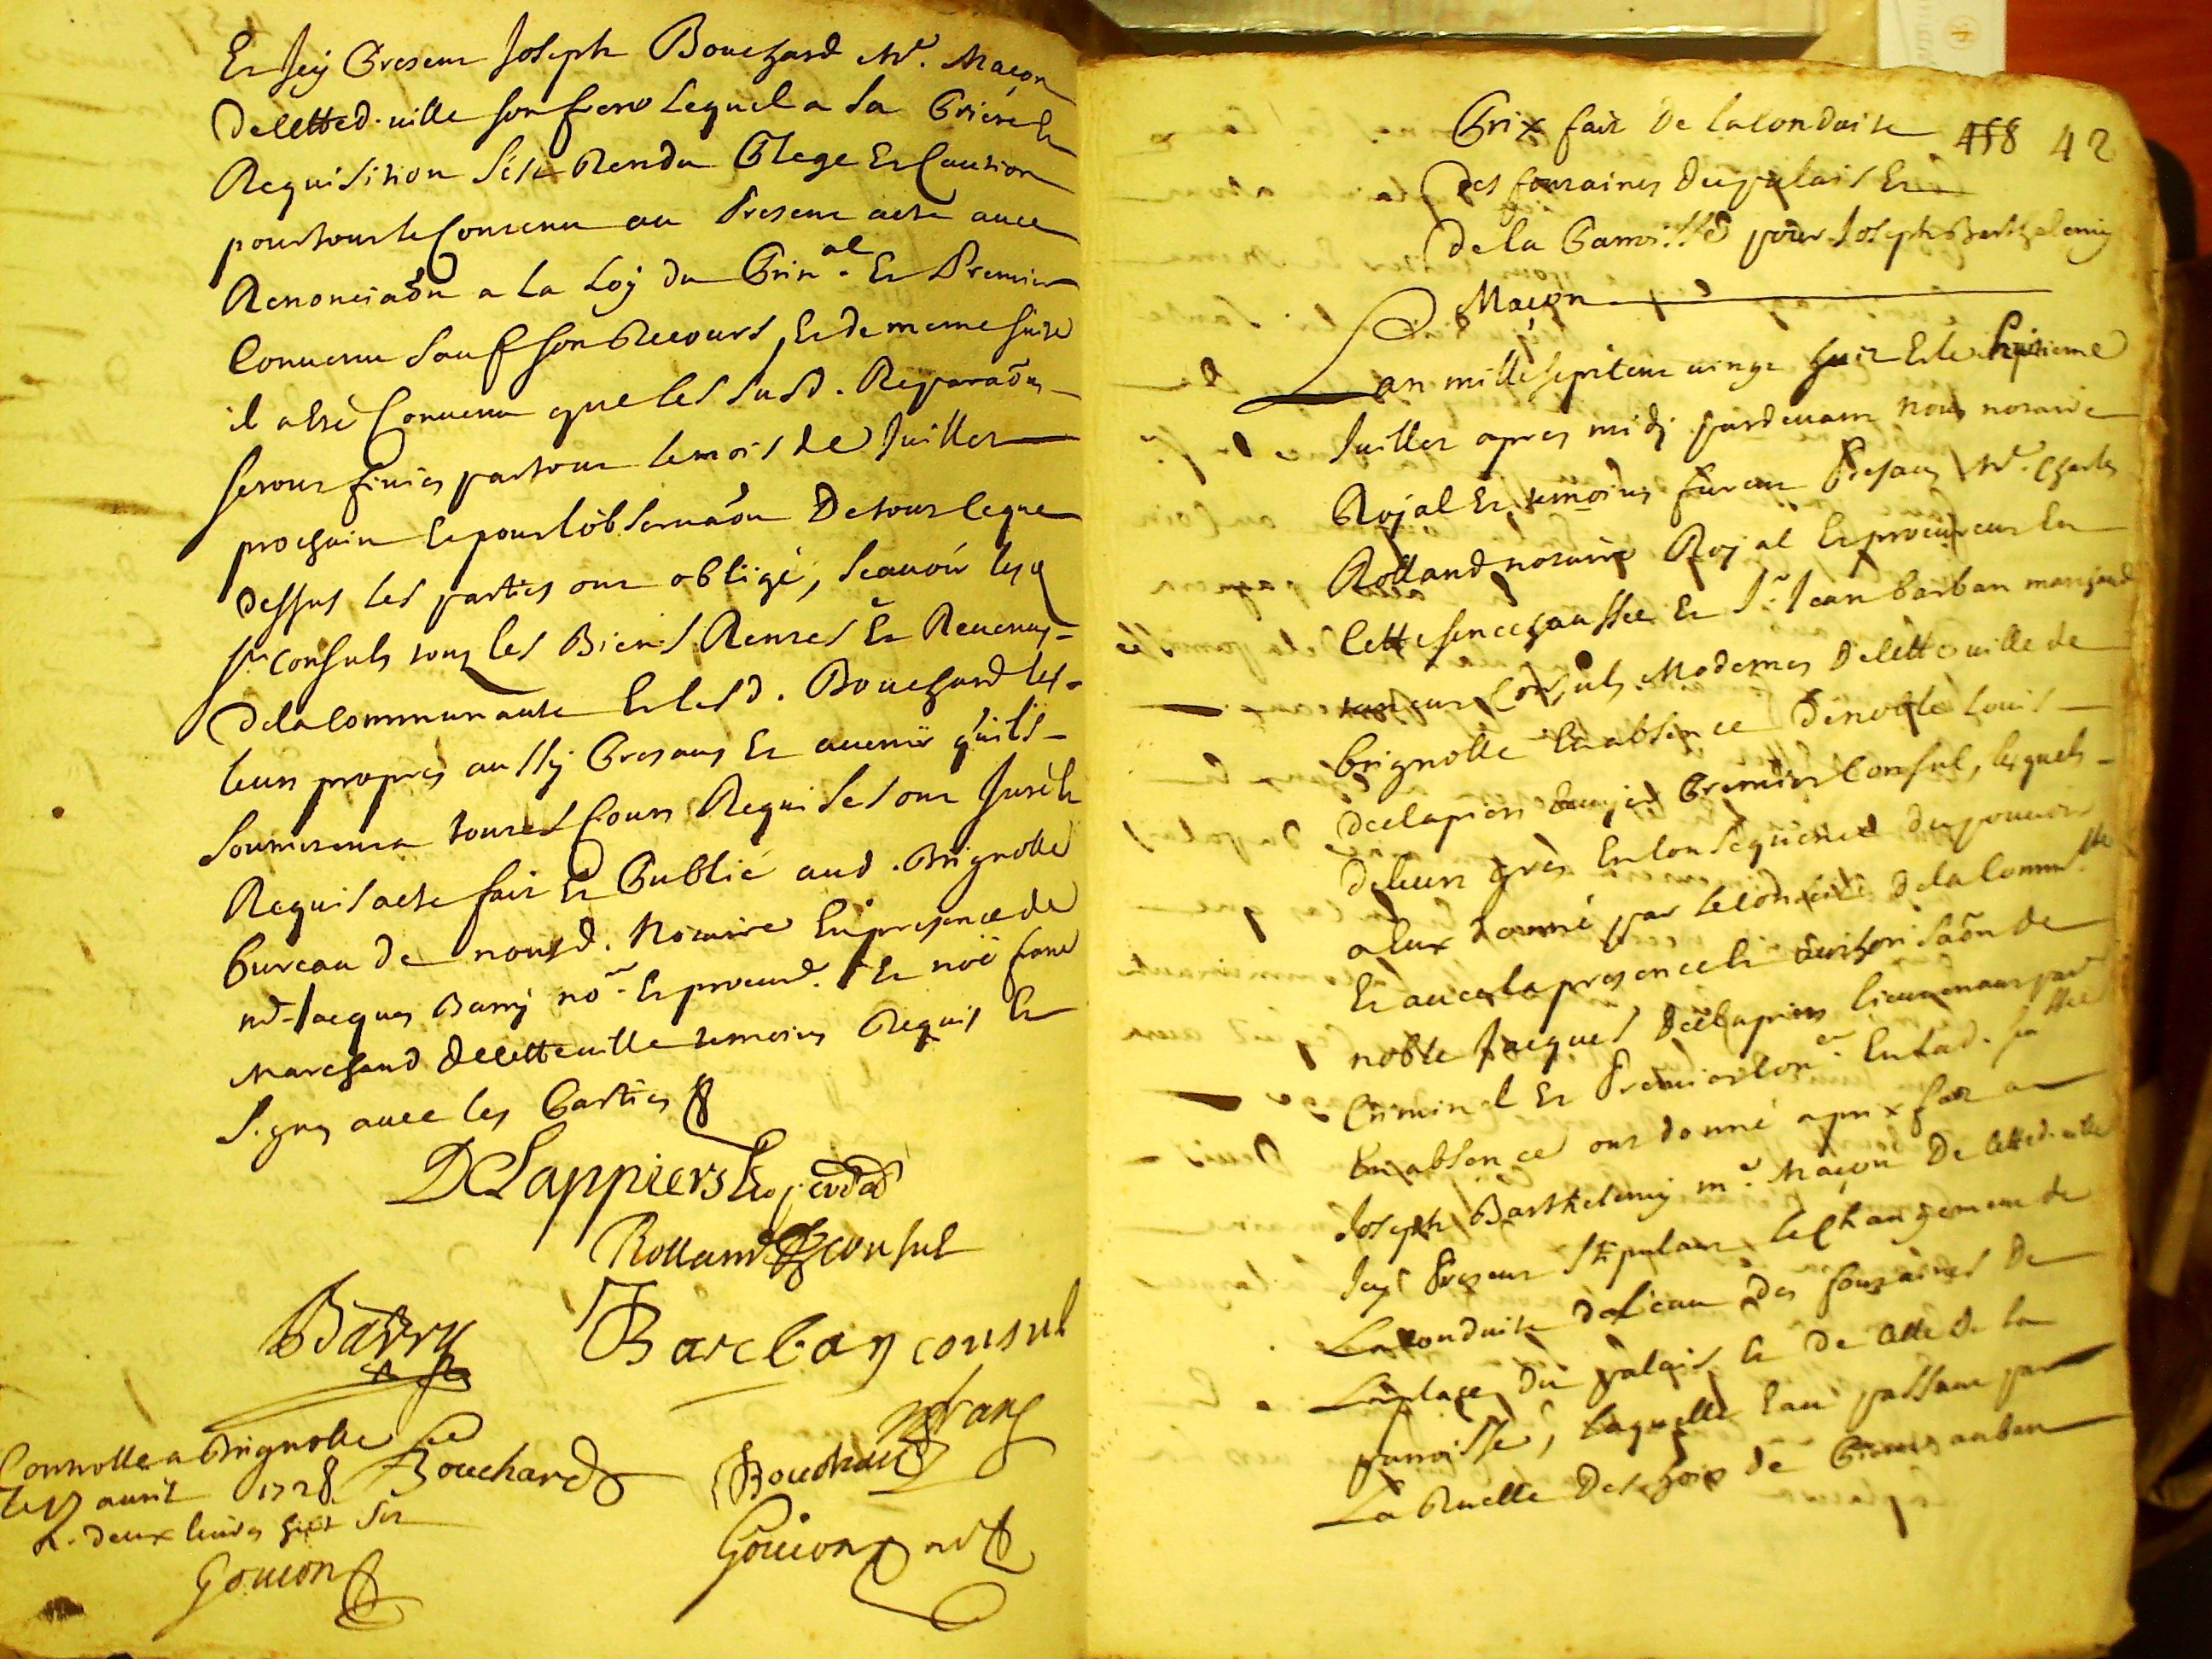 Et Icy Present Joseph Bouchard Me. Maçon
de cette d. ville son frere Lequel a sa Priere Et
Requisition s'est Rendu Plege Et Caution
pour tout le Contenu au Present acte avec
Renonciaõn a la Loy du Prin.al Et Premier
Convenu sauf son Recours, Et de meme suite
il a esté Convenu que les susd. Reparaõns
seront finies par tout le mois de Juillet
prochain Et pour l'observaõn De tout ce que
dessus les parties ont obligé, scavoir les
srs consuls tous les Biens Rentes Et Revenus
de la Communauté Et lesd. Bouchard les
leurs propres aussy Presans Et avenir qu'ils
soumis a toutes Cours Requises ont Juré Et
Requis acte fait Et Publié aud. Brignolle
bureau de nousd. Notaire En presence de
me Jacques Barry no.re Et procur.r Et noé franc
Marchand de cette ville temoins Requis Et
signés avec les Parties
DeLappiers
Rolland consul
Barry Barban consul
franc
Controlle a Brignolle Bouchard Bouchard
le avril 1728
R. deux livres huit sols
Gouion Gouion no.re
Prix fait De la Conduite 458 42
des fontaines du palais Et
de la Parroisse pour Joseph Barthelemy
Maçon
L'an mille sept cent vingt huit Et le huitieme
Juillet apres midy pardevant nous notaire
Royal Et temoins furent Presans Me. Charles
Rolland notaire Royal Et procureur En
cette senechaussée Et Sr. Jean barban marchand
Consuls Modernes De cette ville de
brignolle En absence De noble Louis
Delapiers Premier Consul, lesquels
de leur gres En Consequence du pouvoir
a Eux donné par le Conseil de la Commté
Et avec la presence Et authorisaõn de
noble Jacques Delapiers Lieutenant par.er
Criminel Et Premier Con.er En lad. sé.ssée
En absence ont donné a prix fait a
Joseph Barthelemy me. Maçon De cette d. ville
Icy Present Stipulant Le Changement de
La Conduite de l'eau des fontaines De
La place du palais Et De Celle De la
parroisse, Laquelle Eau passant par
La Ruelle Des hoirs de